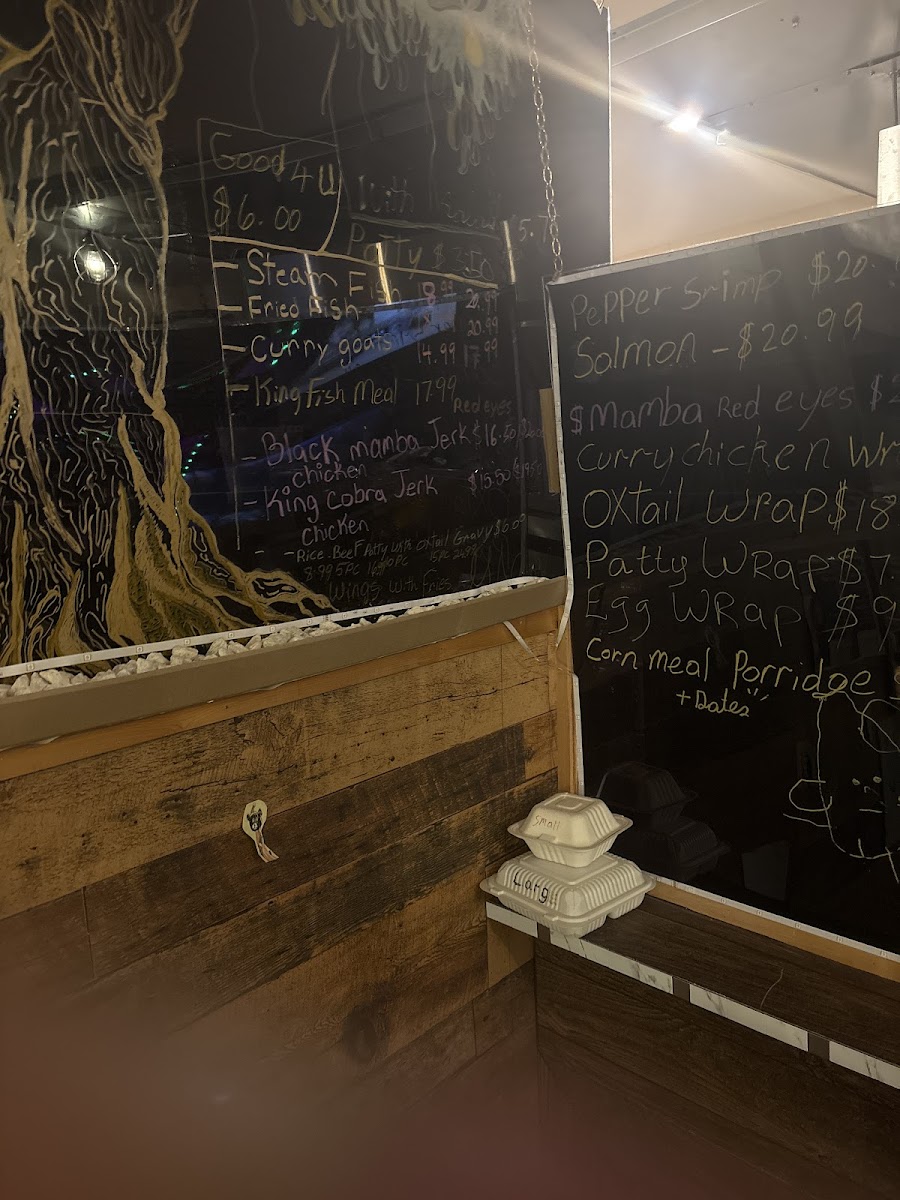 Good 4 U
$6.00
With
Patty $3.50
- Steam Fish 20.99
- Fried Fish 20.99
- Curry goats 14.99 17.99
- King Fish Meal 17.99
Red eyes
- Black mamba Jerk $16.50
chicken
- King Cobra Jerk $15.50
Chicken
- Rice. Beef Patty with oxtail Gravy $6.00
8.99 5PC
Wings with Fries
Pepper Srimp $20.
Salmon - $20.99
$Mamba Red eyes $2
Curry chicken Wr
OXTail WRAP $18
Patty WRAP $7.
Egg WRAP $9
Corn meal Porridge
+ Dates
Small
Larg